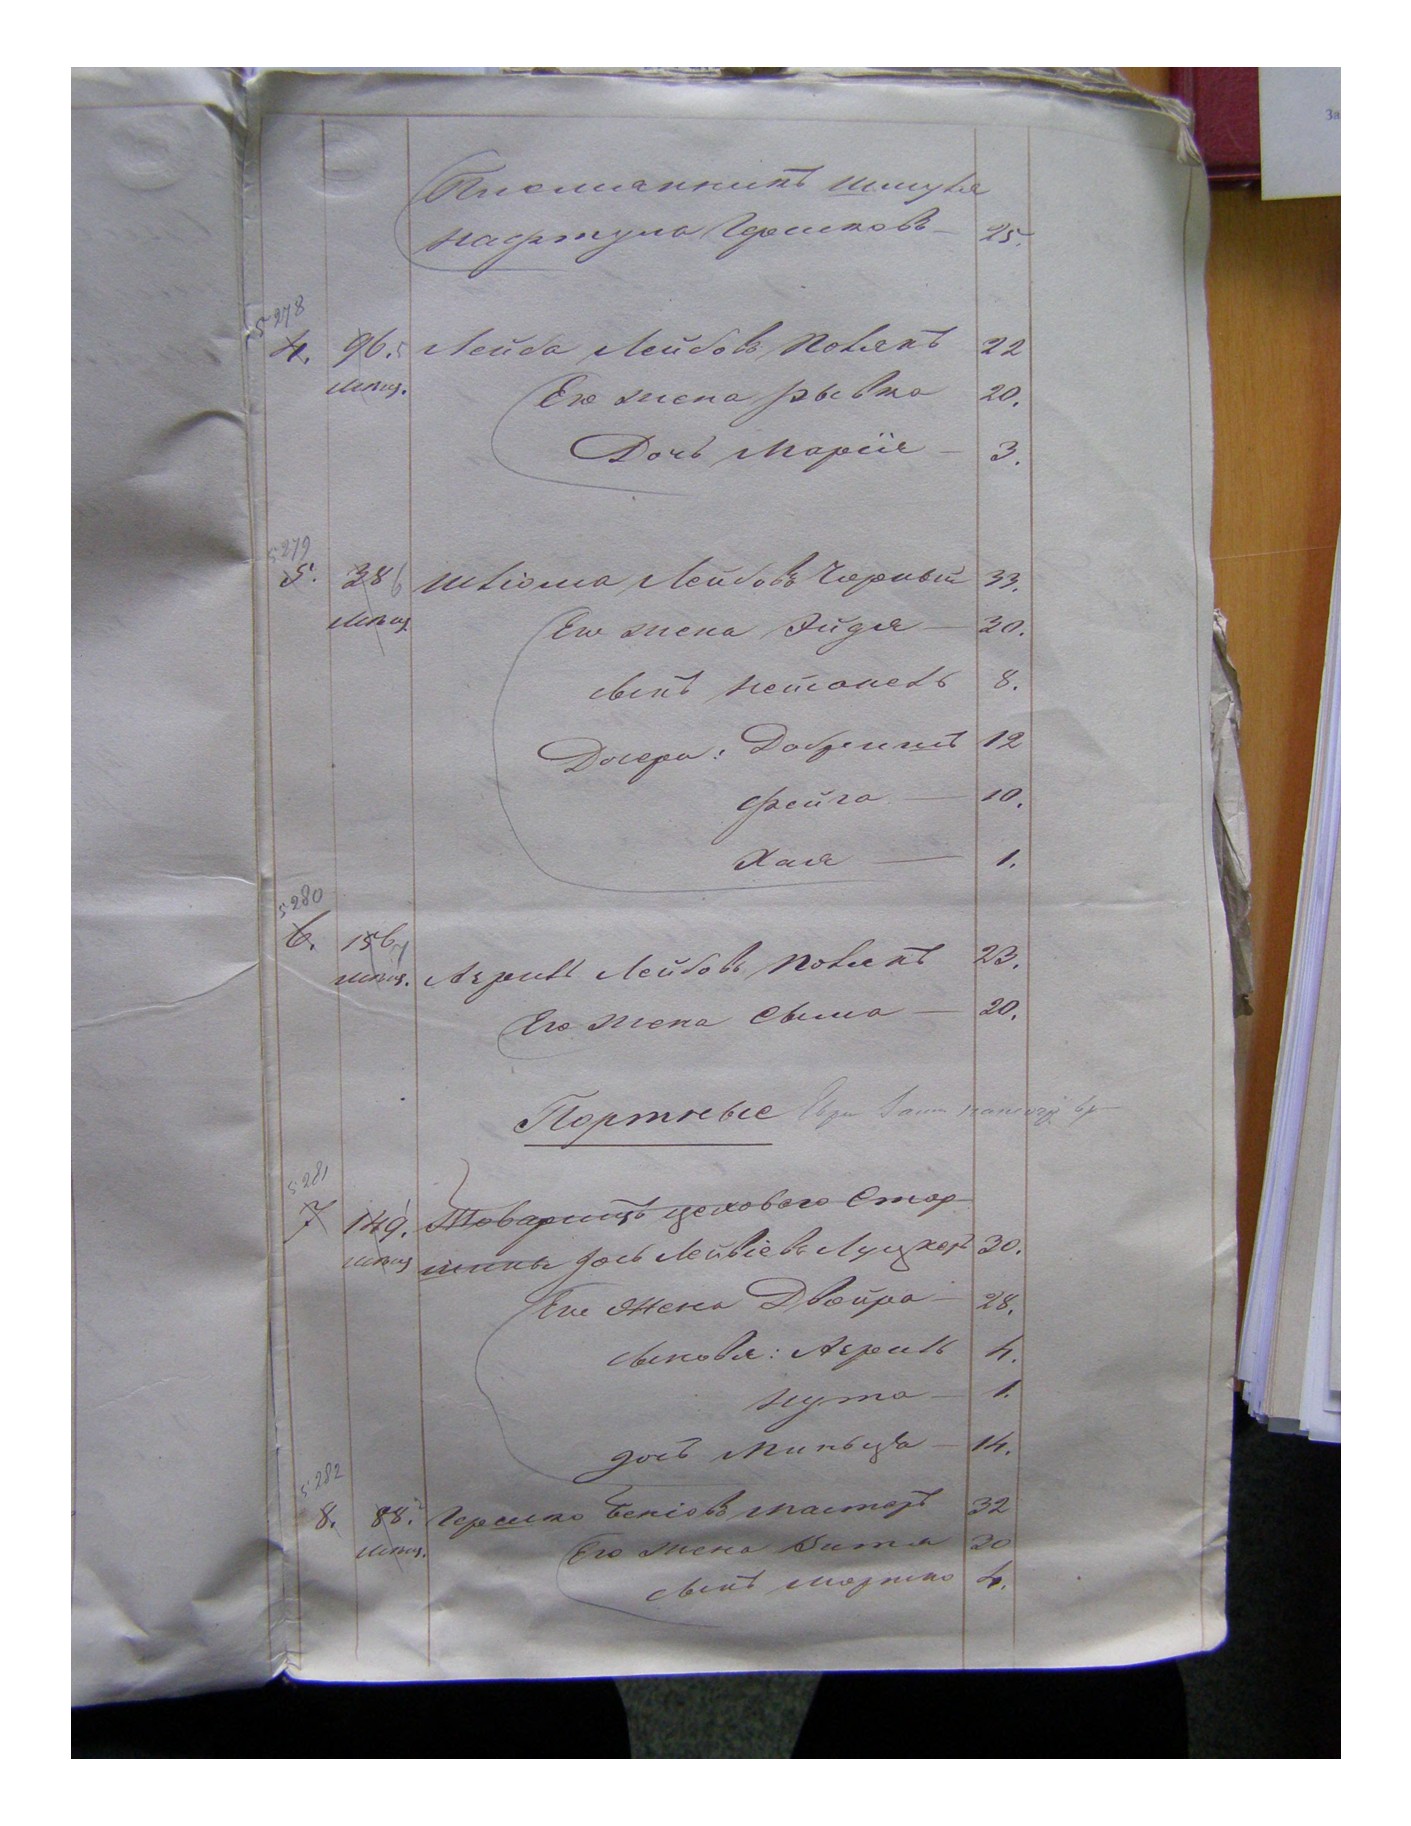 Племянникъ Шмуля
Нафтула Гершковъ — 25.
5278
4. 96. Лейба Лейбовъ Полякъ 22
мѣщ. Его жена Рывка 20.
Дочь Марія — 3.
5279
5. 38 Шліома Лейбовъ Черный 33.
мѣщ. Его жена Эйдля — 30.
Сынъ Нетанель 8.
Дочери: Добришъ 12
Фейга — 10.
Хая — 1.
5280
6. 156
мѣщ. Аврумъ Лейбовъ Полякъ 23.
Его жена Сыма — 20.
Портные
5281
7 149. Товарищъ цеховаго Стар
мѣщ шины Лейвіевъ Луцкеръ 30.
Его Жена Двойра — 28.
Сыновья: 4.
Нута — 1.
дочь Миньця — 14.
5282
8. 88. Гершко Беніовъ Мастеръ 32
мѣщ. Его жена 20
Сынъ Мошко 4.
За